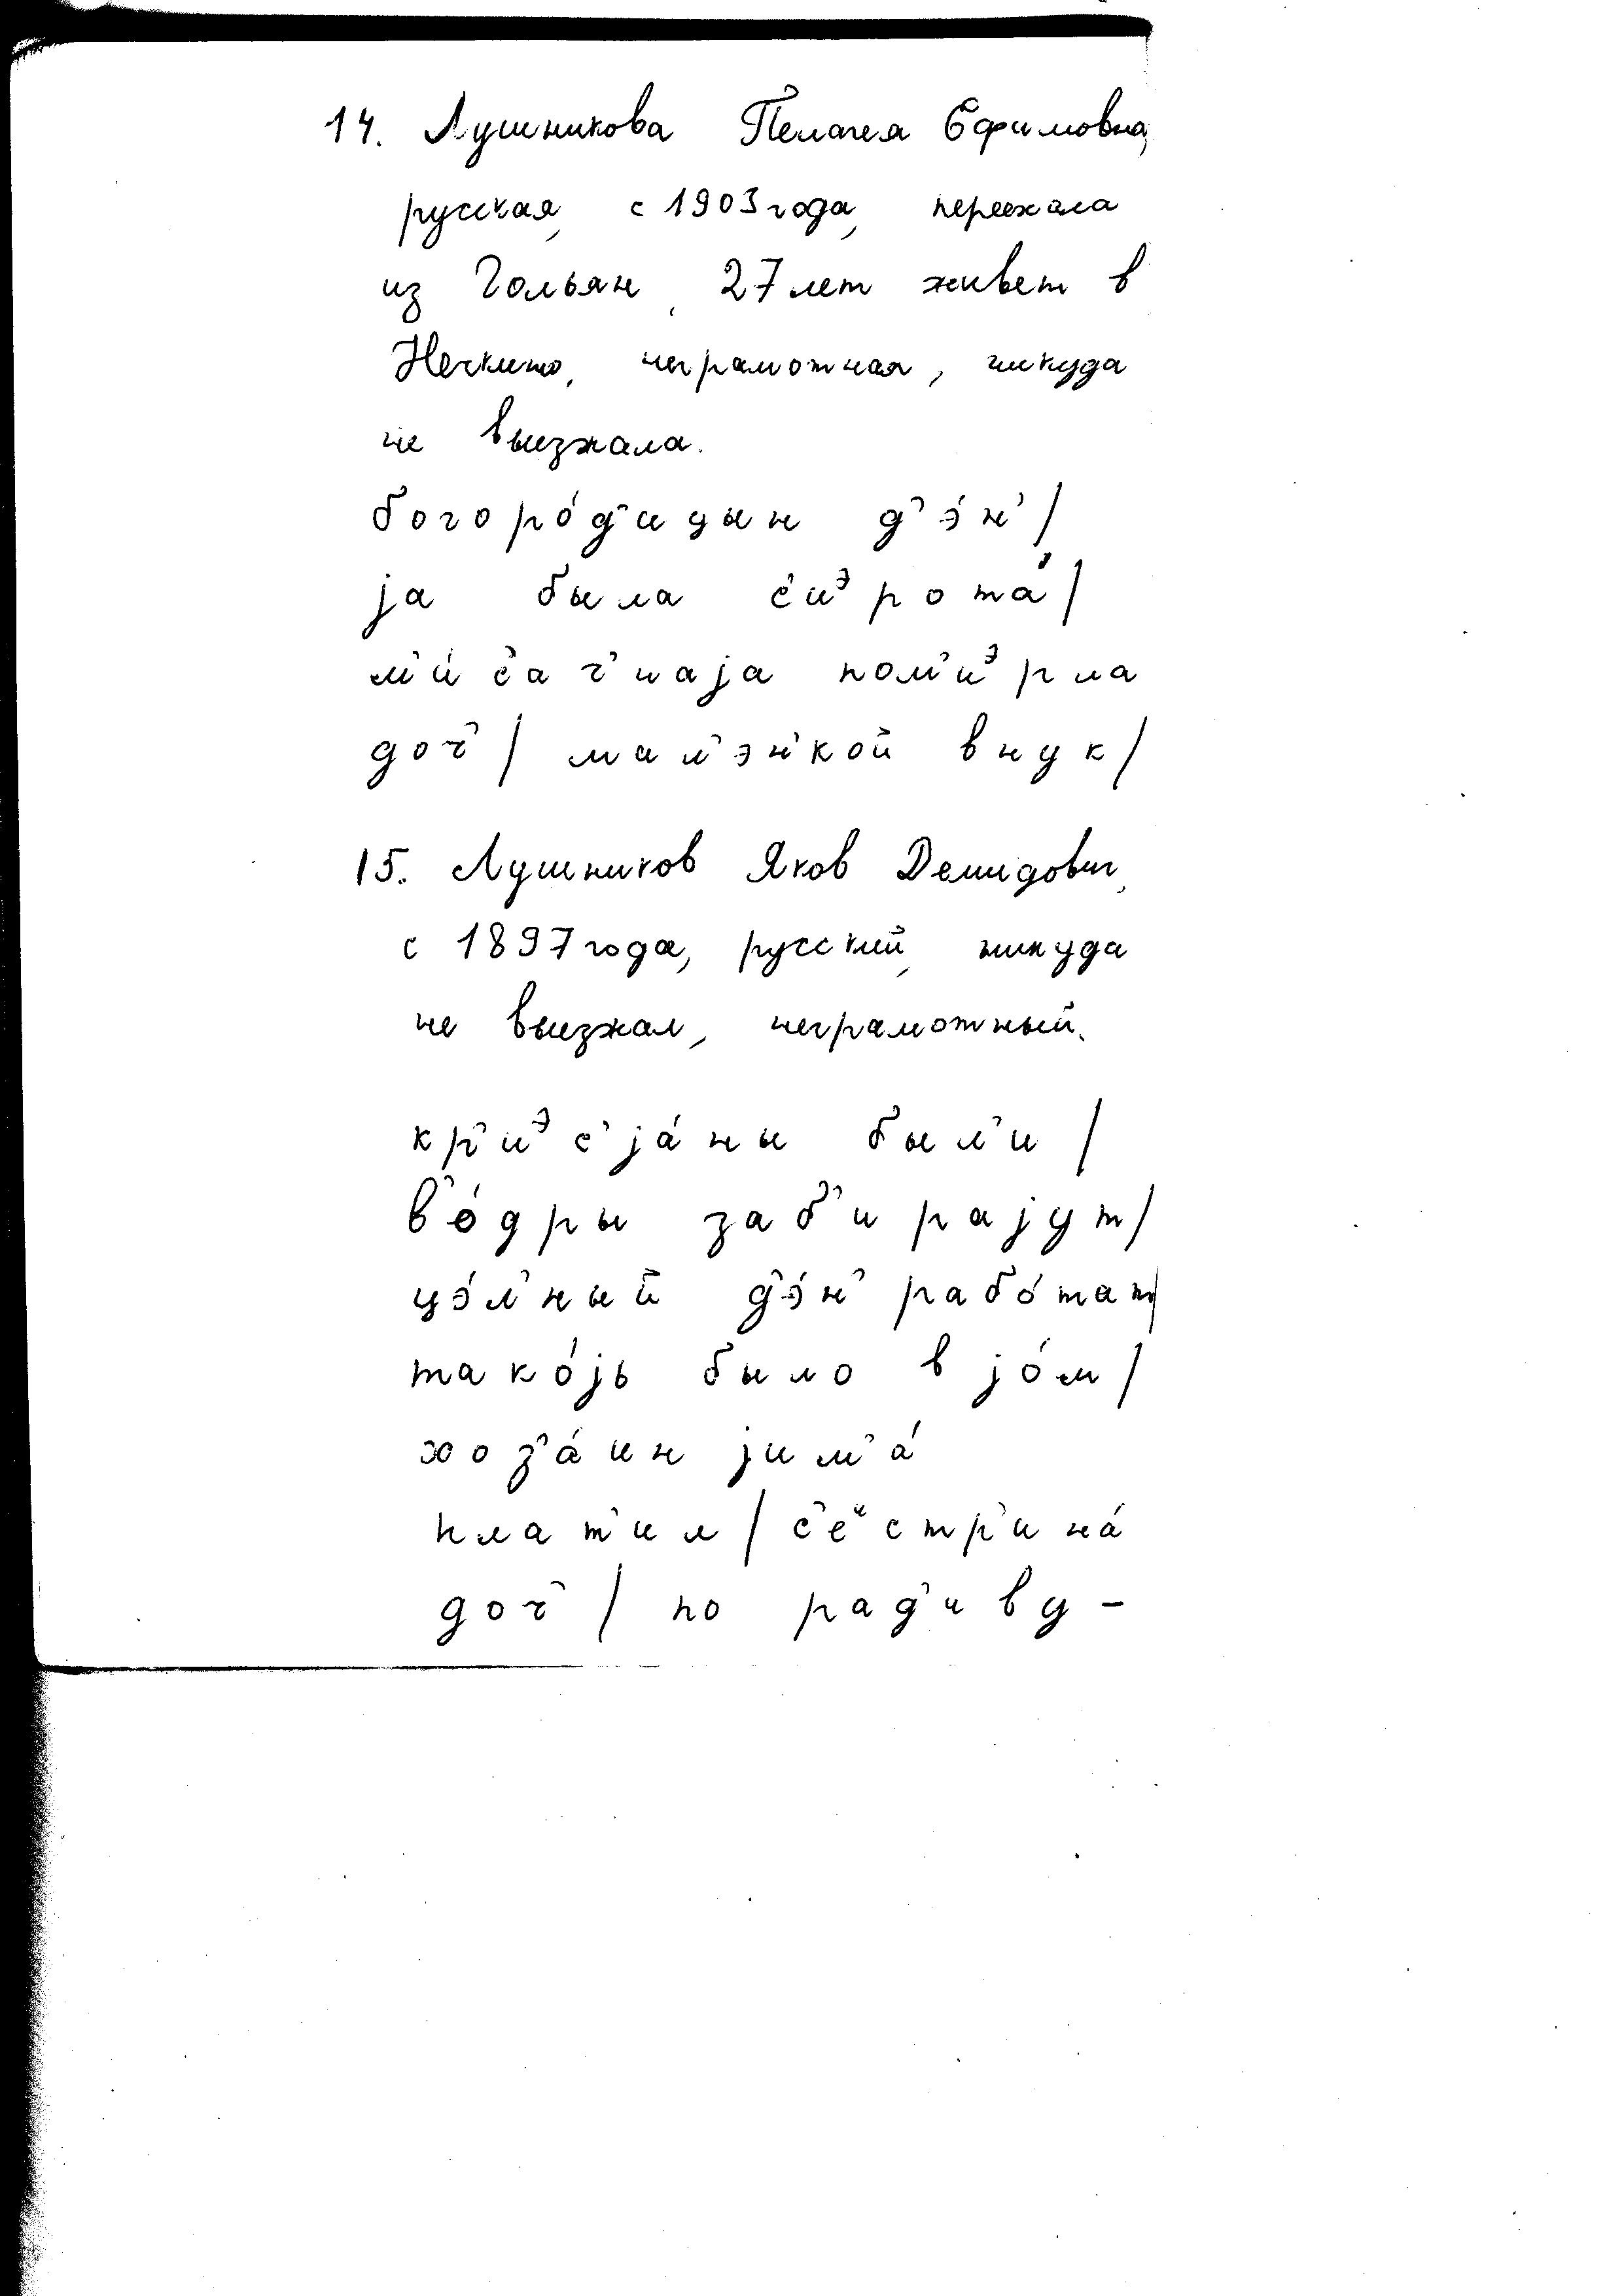 14. Лушникова Пелагея Ефимовна,
русская, с 1903 года, переехала
из Гольян, 27 лет живет в
Нечкино, неграмотная, никуда
не выезжала.
богоро́д'ицын д'э́н'/
jа была с'иᵊрота́/
м'и́с'ач'наjа пом'иᵊрла
доч'/ мал'эн'кой внук/
15. Лушников Яков Демидович,
с 1897 года, русский, никуда
не выезжал, неграмотный.
кр'иᵊс'jа́ны был'и/
в'о́дры заб'ираjут/
цэ́л'ный д'э́н' рабо́тат/
тако́jь было в jо́м/
хоз'а́ин jим'а́
плат'ил/ с'еᵘстр'ина́
доч'/ по рад'иву-